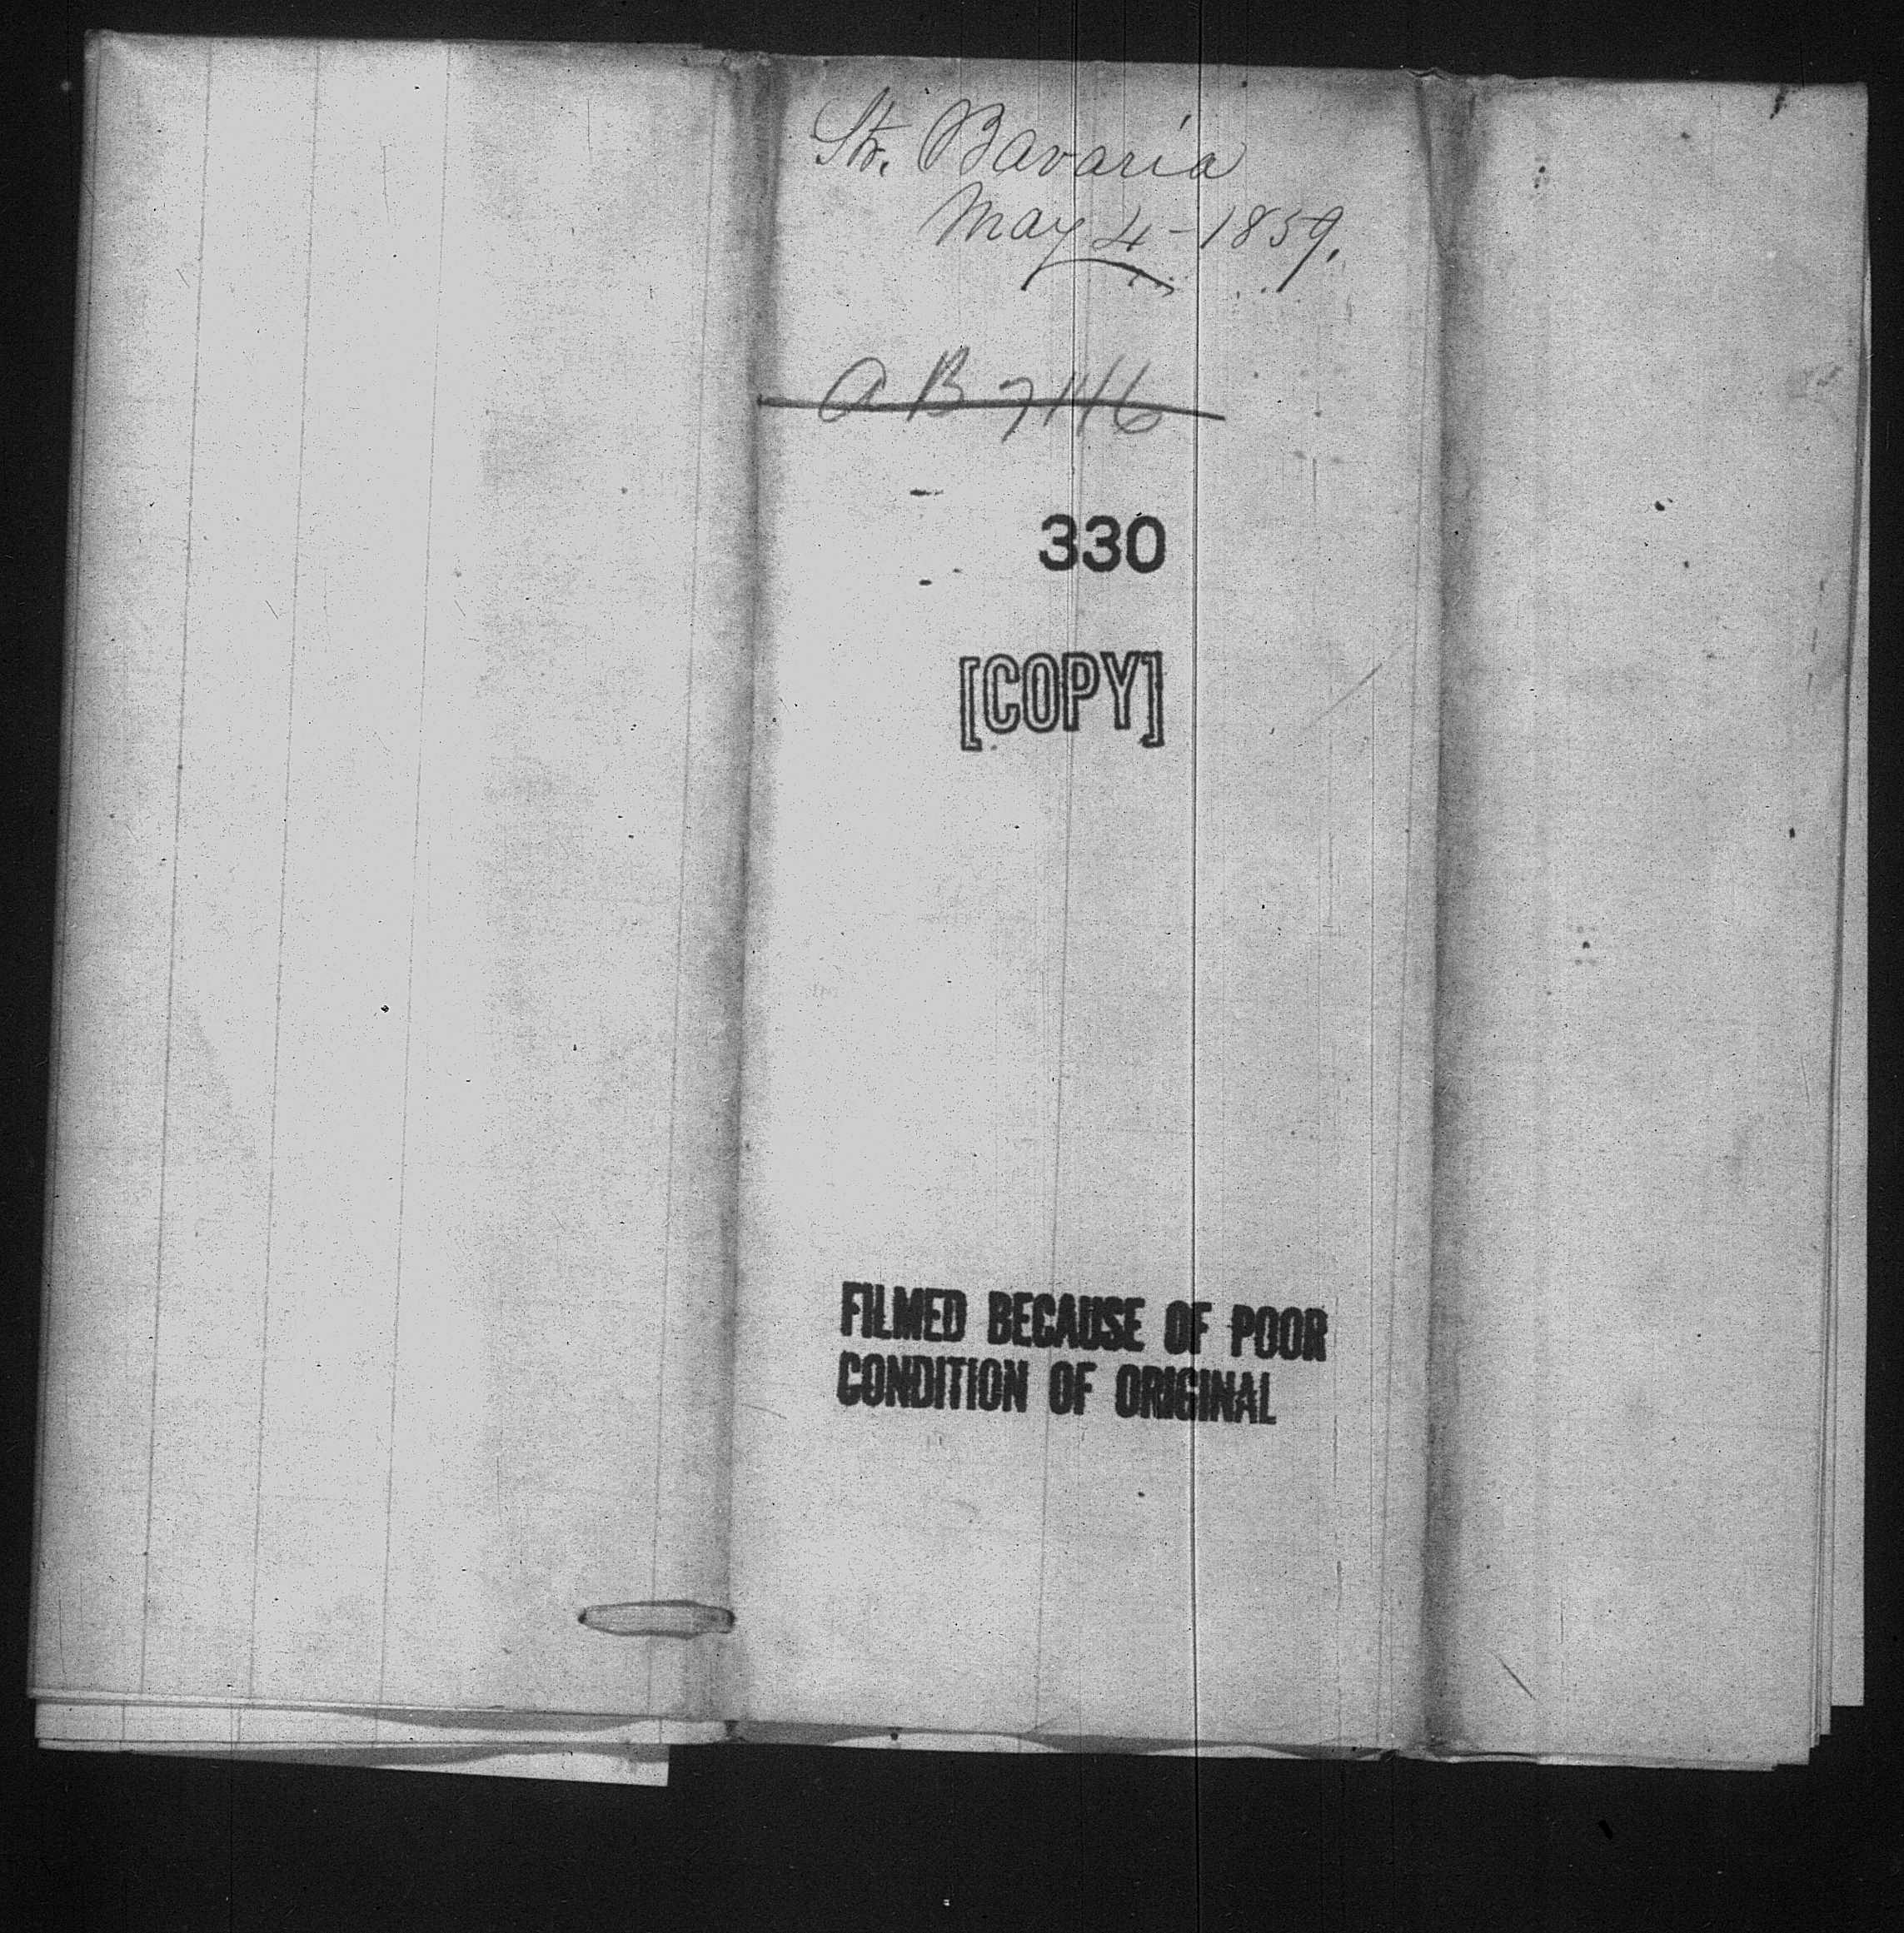 Str. Bavaria
May 4 - 1859.
AB 7116
330
[COPY]
FILMED BECAUSE OF POOR
CONDITION OF ORIGINAL